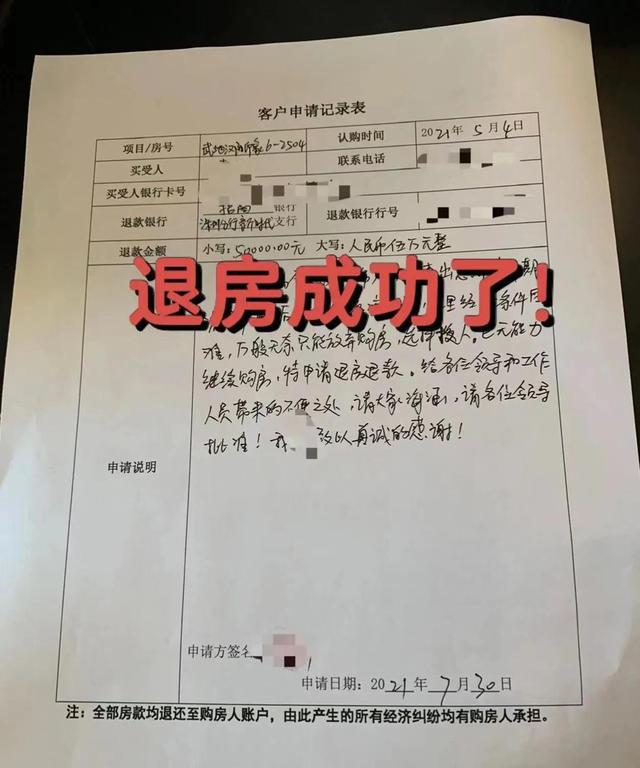 客户申请记录表
项目/房号 6-2504 认购时间 2021年5月4日
买受人 联系电话
买受人银行卡号
退款银行 招商 银行 支行 退款银行行号
退款金额 小写:50000.00元 大写:人民币伍万元整
退房成功了!
难,万般无奈只能放弃购房,
继续购房,特申请退房退款。给各位领导和工作
人员带来的不便之处,请大家谅解,请各位领导
批准!我 致以真诚的感谢!
申请说明
申请方签名
申请日期:2021年7月30日
注:全部房款均退还至购房人账户,由此产生的所有经济纠纷均有购房人承担。